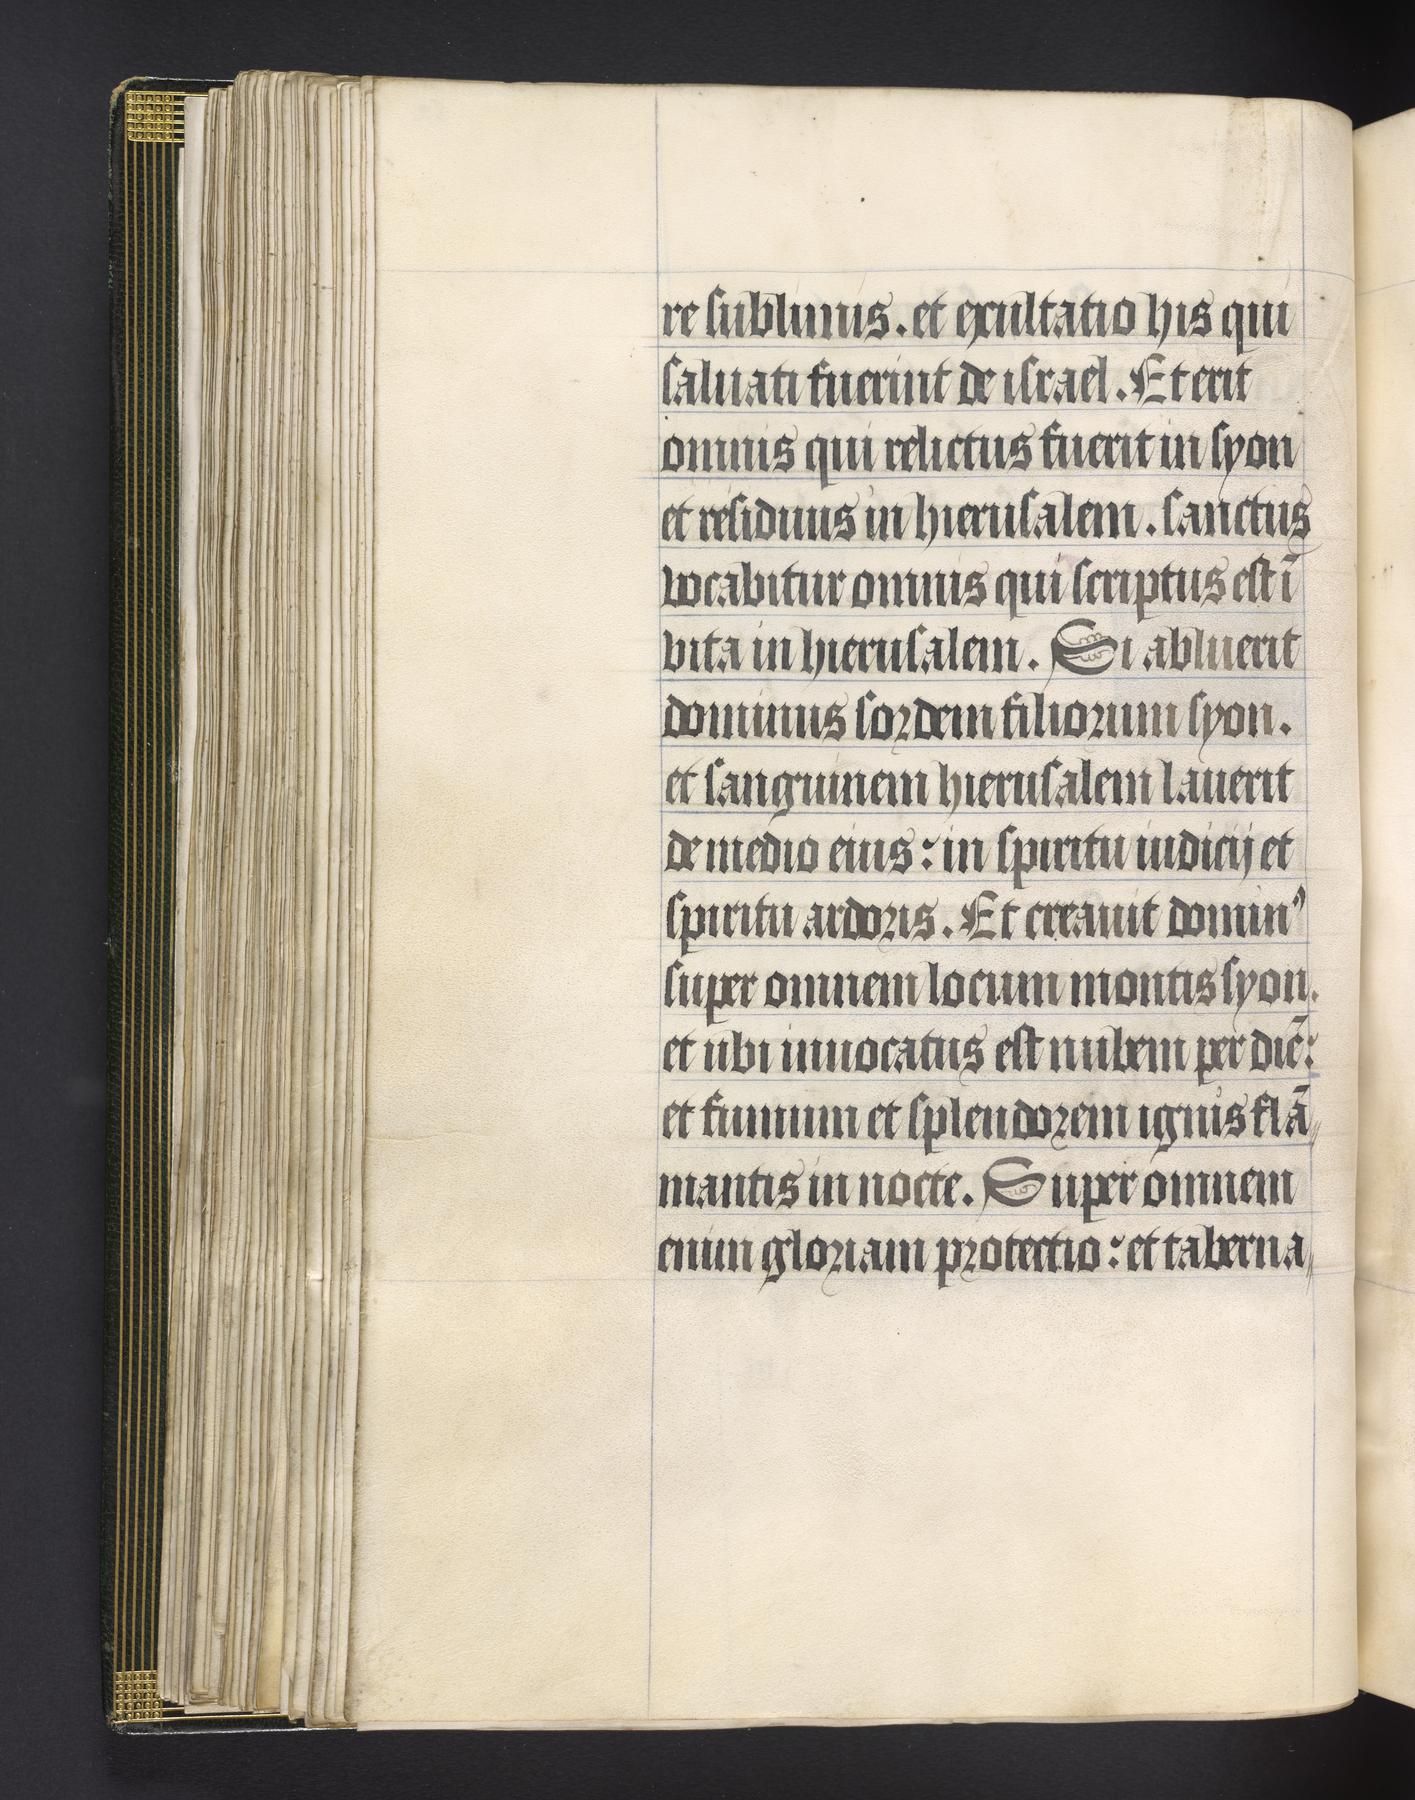 re sublimis. et exultatio his qui
saluati fuerint de israel. Et erit
omnis qui relictus fuerit in syon
et residuus in hierusalem. sanctus
vocabitur omnis qui scriptus est ī
vita in hierusalem. Si abluerit
dominus sordem filiorum syon.
et sanguinem hierusalem lauerit
de medio eius: in spiritu iudicij et
spiritu ardoris. Et creauit dominꝰ
super omnem locum montis syon.
et ubi inuocatus est nubem per diē:
et fumum et splendorem ignis flā⸗
mantis in nocte. Super omnem
enim gloriam protectio: et taberna⸗